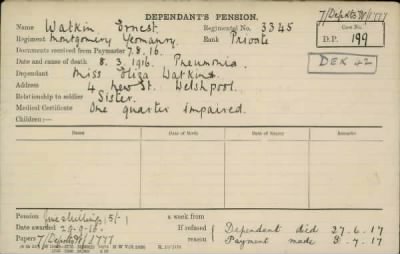 DEPENDANT'S PENSION.
7/Depots/W/1777
Name Watkin Ernest Regimental No. 3345
Case No.
D.P. 199
Regiment Montgomery Yeomanry. Rank Private
Documents received from Paymaster 7.8.16.
DEK 42
Date and cause of death 8.3.1916. Pneumonia.
Dependant Miss Eliza Watkins.
Address 4 New St. Welshpool.
Relationship to soldier Sister.
Medical Certificate One quarter impaired.
Children:—
Name Date of Birth Date of Cessation Remarks
Pension five shillings (5/-) a week from
Date awarded 20.9.16. If refused Dependent died 27.6.17
Papers 7/Depots/W/1777 reason Payment made 3.7.17